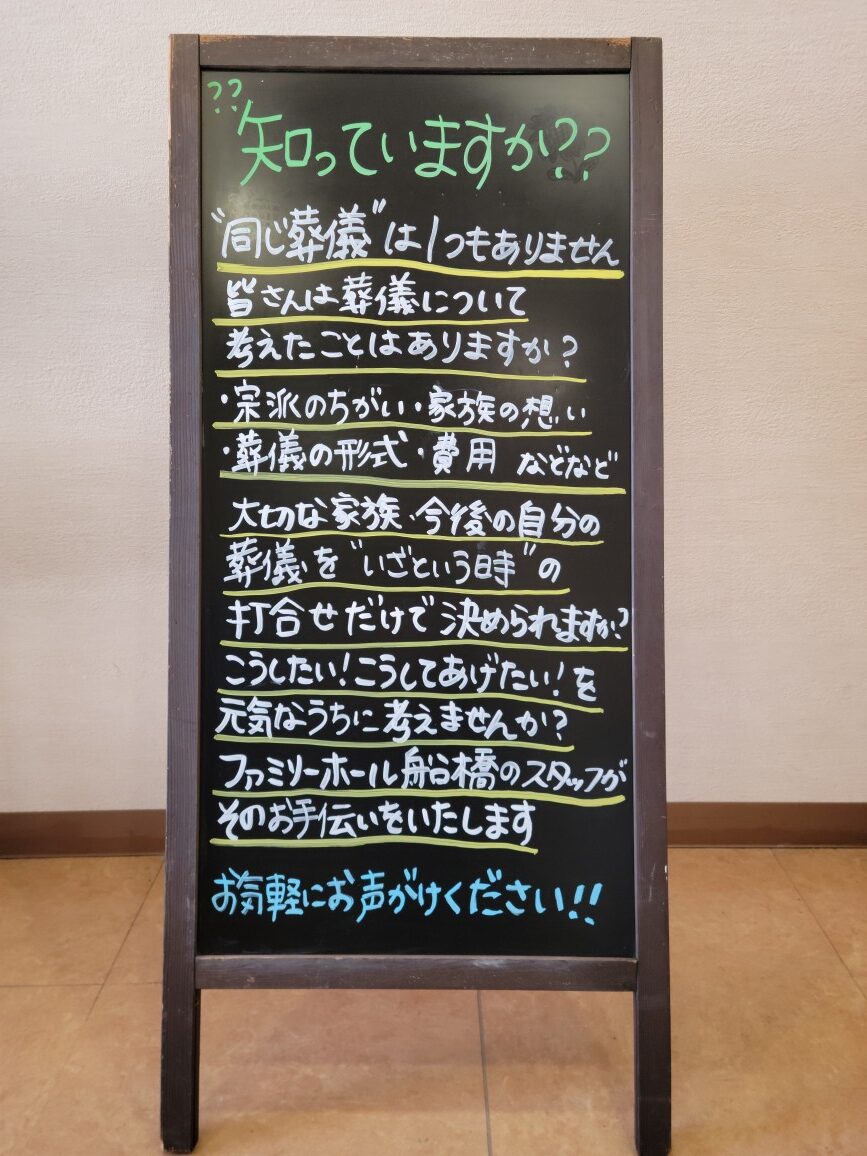 ??知っていますか??
"同じ葬儀"は1つもありません
皆さんは葬儀について
考えたことはありますか?
・宗派のちがい・家族の想い
・葬儀の形式・費用 などなど
大切な家族・今後の自分の
葬儀を"いざという時"の
打合せだけで決められますか?
こうしたい!こうしてあげたい!を
元気なうちに考えませんか?
ファミリーホール船橋のスタッフが
そのお手伝いをいたします
お気軽にお声がけください!!